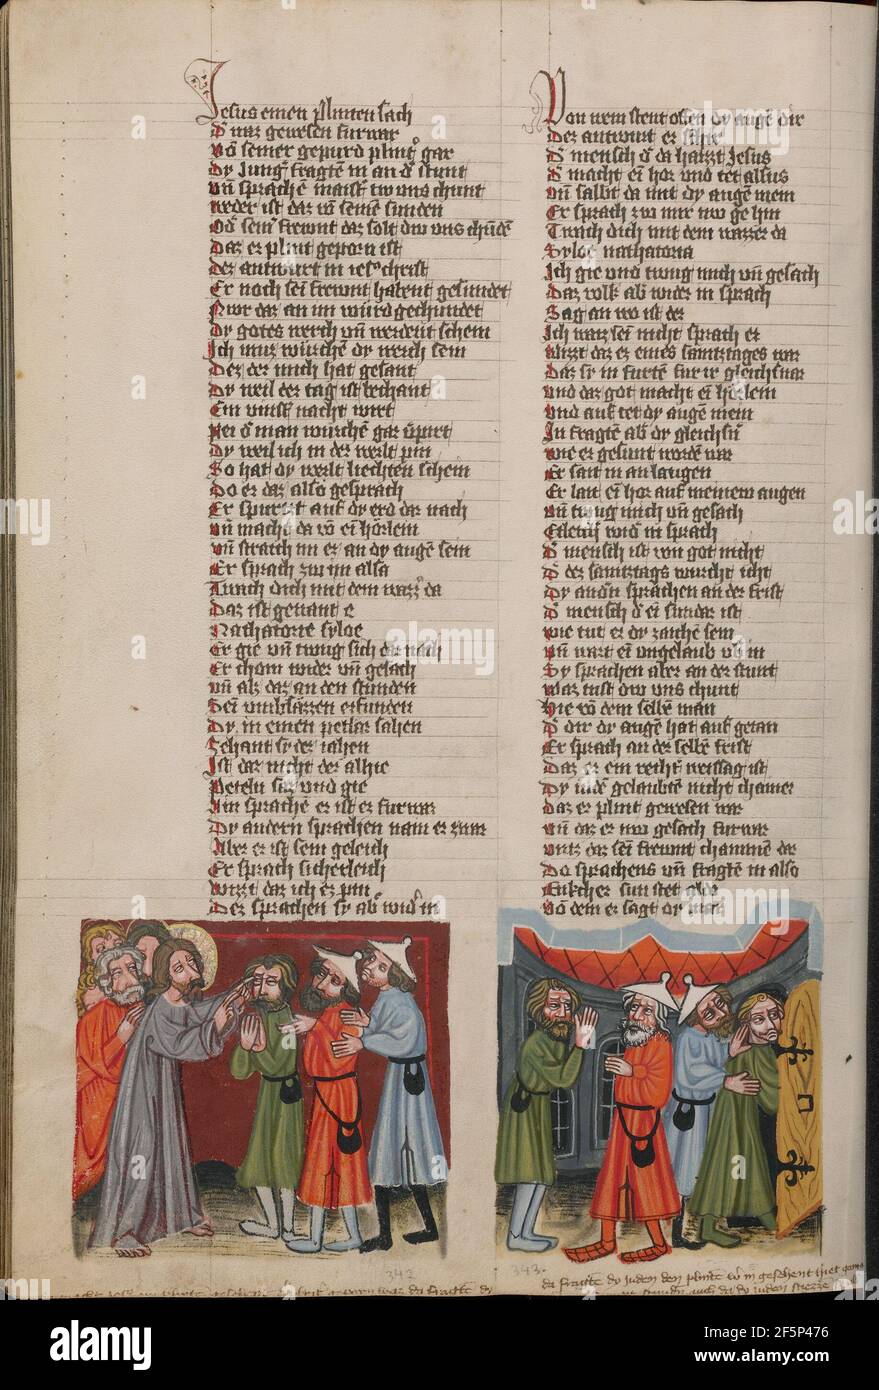 Jesus einen plinten sach
Der waz gewesen furwar
Von seiner gepurd plint gar
Dy Jung fragten in an der stunt
Vnd sprachen maister tw vns chunt
Weder ist daz von seinen sunden
Oder seiner frewnt daz solt dw vns chunden
Daz er plint geporn ist
Der antwurt in iesus christ
Er noch sein frewnt habent gesundet
Nwr daz an im wurd gechundet
Dy gotes werch vnd werdent schein
Ich muz wurchen dy werch sein
Dez der mich hat gesant
Dy weil der tag ist bechant
Ein vinster nacht wirt
Pei der man wurchen gar
Dy weil ich in der werlt pin
So hat dy werlt liechten schein
Do er daz also gesprach
Er spurtzt auf dy erd dar nach
Vnd macht da von ein horlem
Vnd straich im er an dy augen sein
Er sprach zw im alsa
Twach dich mit dem wazzer da
Daz ist genant e
Nathatorie syloe
Er gie vnd twug sich dar nach
Er chom wider vnd gesach
Vnd alz daz an den stunden
Sein vmbsazzen erfunden
Dy in einen petlar sahen
Zehant sy dez iahen
Ist daz nicht der alhie
Peteln saz vnd gie
Ain sprachen er ist er furwar
Dy andern sprachen nain er zwar
Aber er ist sein geleich
Er sprach sicherleich
Wizzt daz ich er pin
Dez sprachen sy aber wider in
Von wem stent offen dy augen dir
Dez antwurt er schir
Der mensch der da haizzt Jesus
Der macht ein hor vnd tet alsus
Vnd salbt da mit dy augen mein
Er sprach zw mir nw ge hin
Twach dich mit dem wazzer da
Syloe nathatoria
Ich gie vnd twug mich vnd gesach
Daz volk aber wider in sprach
Sag an wo ist der
Ich waiz sein nicht sprach er
Wizt daz er eines samtztages waz
Daz sy in furten fur ir gleichsnar
Vnd daz got macht ein horlem
Vnd auf tet dy augen mein
In fragten aber dy gleichsner
Wie er gesunt worden war
Er sait in an laugen
Er lait ein hor auf meinem augen
Vnd twug mich vnd gesach
Etleich wider in sprach
Der mensch ist von got nicht
Der dez samtztags wurcht icht
Dy andern sprachen an der frist
Der mensch der ein sundar ist
Wie tut er dy zaichen sein
Vnd wart ein vngelaub vnder in
Sy sprachen aber an der stunt
Waz tust dw vns chunt
Hie von dem selben man
Der dir dy augen hat auf getan
Er sprach an der selben frist
Daz er ein recht weissag ist
Dy iuden gelaubten nicht chainer
Daz er plint gewesen war
Vnd daz er nw gesach furwar
Vntz daz sein frewnt chammen dar
Do sprachens vnd fragten in also
Ewcher sun stet
Von dem er sagt
343
343.
da fragten dy juden den plinten
alamy
2F5P476
www.alamy.com